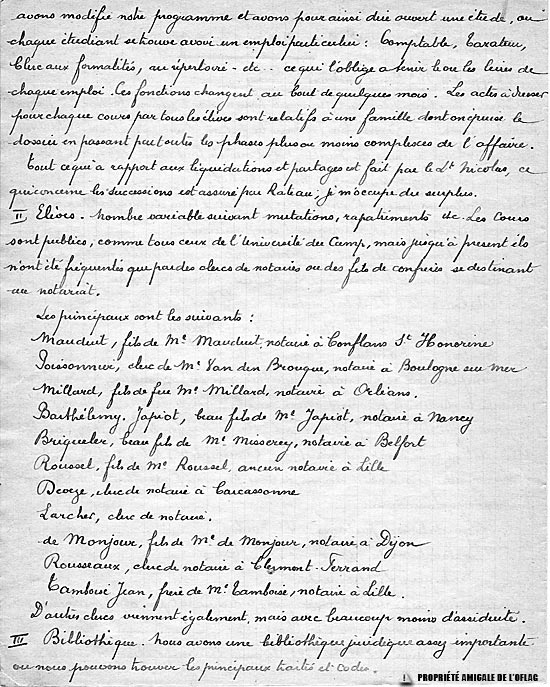 avons modifié notre programme et avons pour ainsi dire ouvert une étude, ou
chaque étudiant se trouve avoir un emploi particulier : Comptable, Taxateur,
Clerc aux formalités, au répertoire - etc - ce qui l'oblige a tenir tous les livres de
chaque emploi. Ces fonctions changent au bout de quelques mois. Les actes à dresser
pour chaque cours par tous les élèves sont relatifs à une famille dont on épuise le
dossier en passant par toutes les phases plus ou moins complexes de l'affaire.
Tout ce qui a rapport aux liquidations et partages est fait par le Lt Nicolas, ce
qui concerne les successions est assuré par Rateau, je m'occupe du surplus.
II Elèves - Nombre variable suivant mutations, rapatriements etc. Les cours
sont publics, comme tous ceux de l'Université du Camp, mais jusqu'à présent ils
n'ont été fréquentés que par des clercs de notaires ou des fils de confrères se destinant
au notariat.
Les principaux sont les suivants :
Mauduit, fils de Me Mauduit, notaire à Conflans St Honorine
Poissonnier, clerc de Me Van den Brouque, notaire à Boulogne sur mer
Millard, fils de feu Me Millard, notaire à Orléans.
Barthélemy. Japiot, beau fils de Me Japiot, notaire à Nancy
Briqueler, beau fils de Me Misserey, notaire à Belfort
Roussel, fils de Me Roussel, ancien notaire à Lille
Deveze, clerc de notaire à Carcassonne
Larcher, clerc de notaire.
de Monjour, fils de Me de Monjour, notaire à Dijon
Rousseaux, clerc de notaire à Clermont-Ferrand
Tamboise Jean, frère de Me Tamboise, notaire à Lille.
D'autres clercs viennent également, mais avec beaucoup moins d'assiduité.
III Bibliothèque. Nous avons une bibliothèque juridique assez importante
ou nous pouvons trouver les principaux traités et Codes.
PROPRIÉTÉ AMICALE DE L'OFLAG